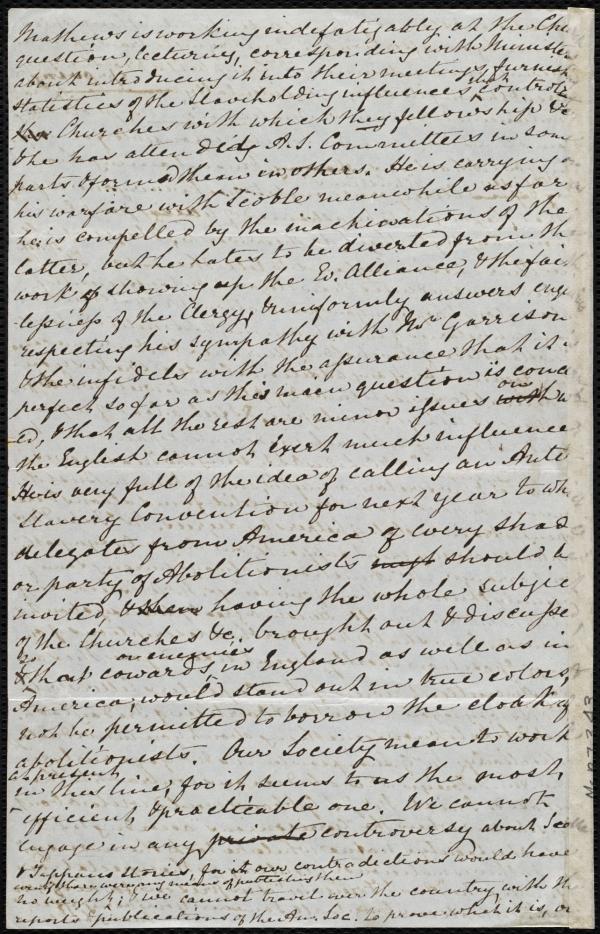 Mathews is working indefatigably at the Chu
question, lecturing, corresponding with Minister
about introducing it into their meetings, furnish
statistics of the Slaveholding influences which control
the Churches with which they fellowship &c
& he has attended A.S. Committees in som
parts & formed them in others. He is carrying
his warfare with Scoble meanwhile as far
he is compelled by the machinations of the
latter, but he hates to be diverted from th
work of showing up the Ev. Alliance, & the fai
lessness of the Clergy, & uniformly answers enq
respecting his sympathy with Mr Garrison
& the infidels with the assurance that it i
perfect so far as this main question is conce
ed, & that all the rest are minor issues on with w
the English cannot exert much influence
He is very full of the idea of calling an Anti
Slavery Convention for next year to wh
delegates from America of every shad
or party of Abolitionists might should b
invited, & then having the whole subjec
of the Churches &c. brought out & discusse
so that cowards or enemies in England as well as in
America, would stand out in true colors,
not be permitted to borrow the cloak of
abolitionists. Our Society mean to work
at present
in this line, for it seems to us the most
efficient & practicable one. We cannot
engage in any private controversy about Scob
& Tappan's stories, for our contradictions would have
were there were any means of publishing them
no weight; & we cannot travel over the country with th
reports & publications of the Am. Soc. to prove which it is, or